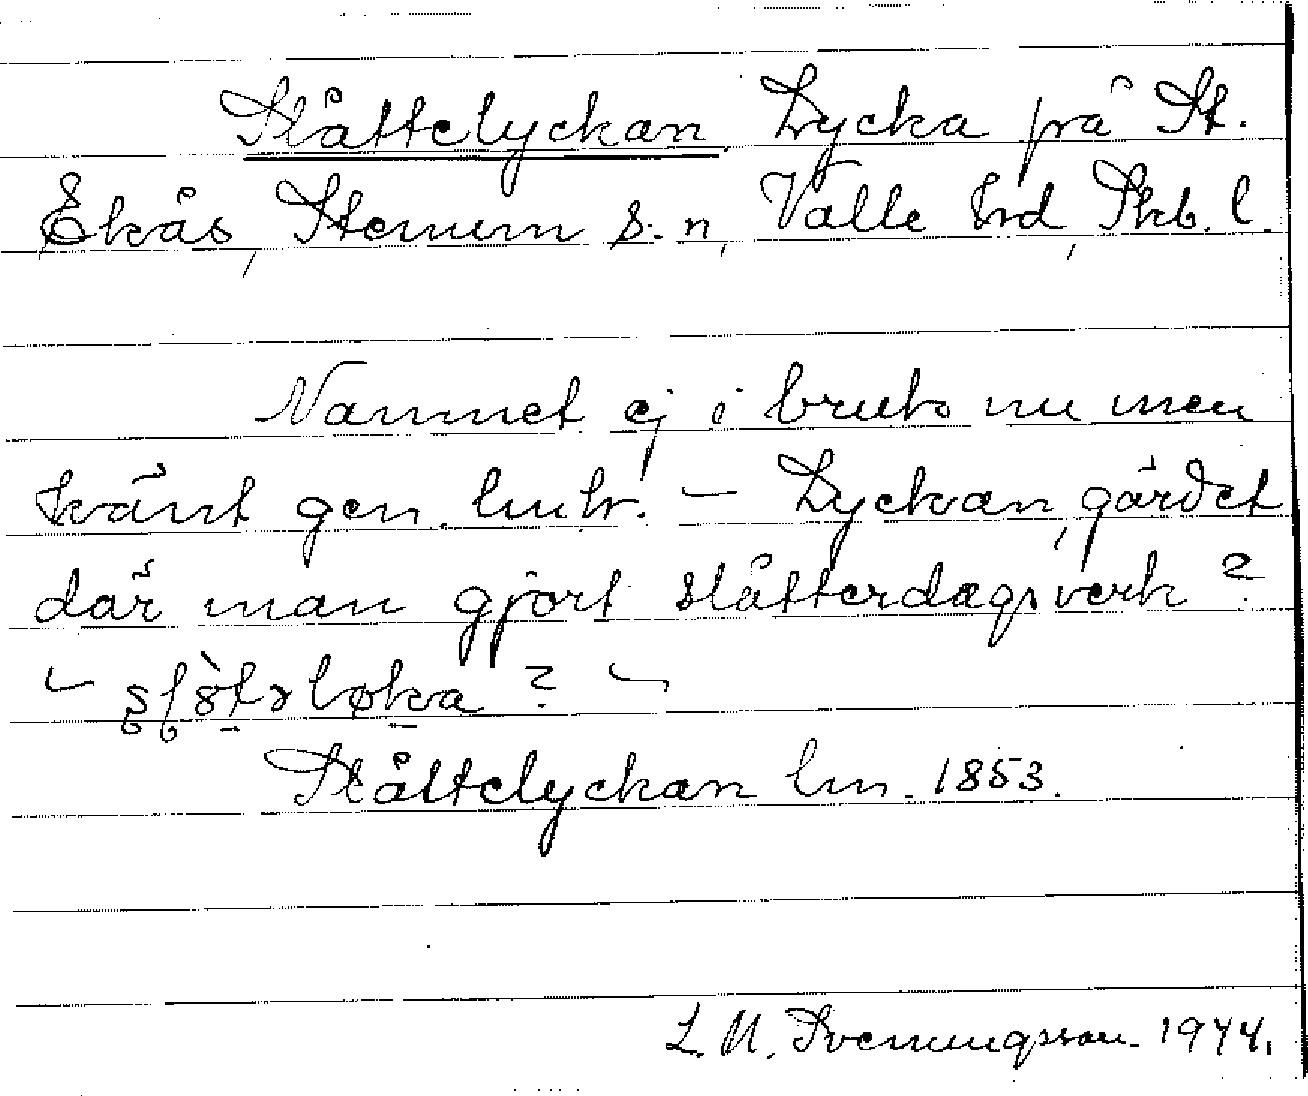 Slåttelyckan Lycka på St.
Ekås, Stenum s:n, Valle hrd, Skb. l.
Namnet ej i bruk nu men
känt gen. lmk. – Lyckan, gärdet
där man gjort slåtterdagsverk?
Slåttelyckan lm. 1853.
L. M. Svenungsson. 1944.